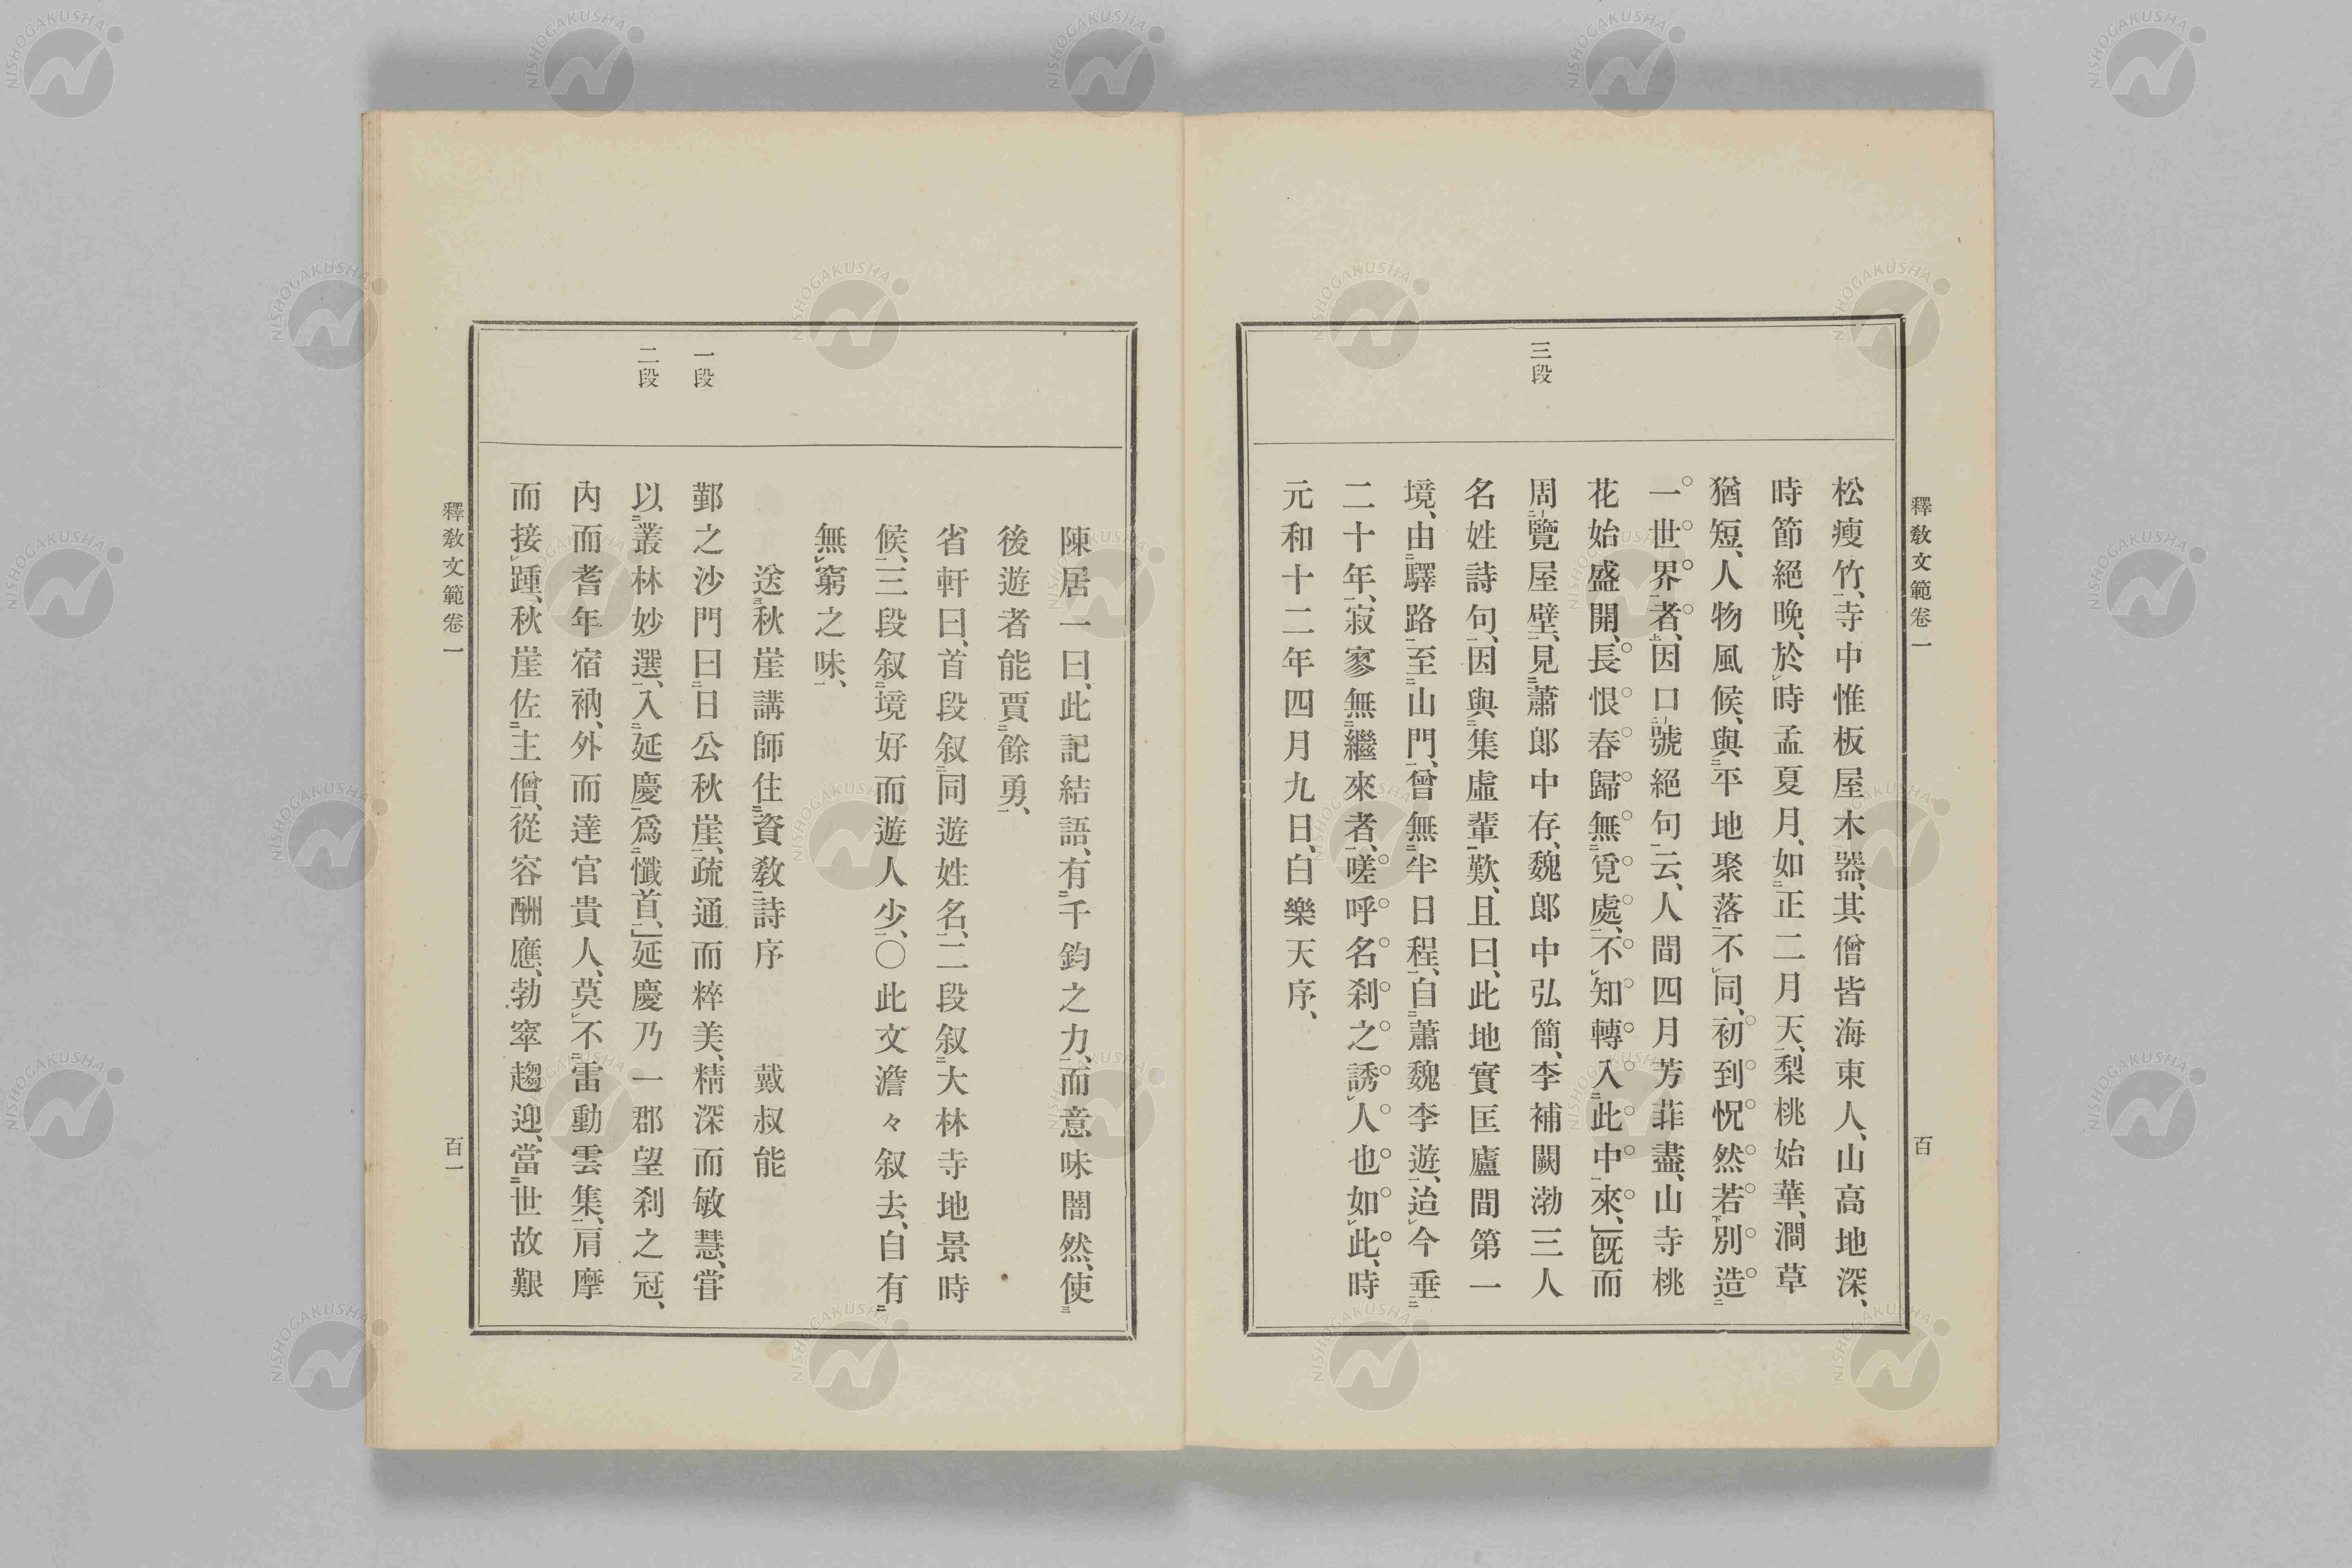 釋敎文範卷一
百
三段
松瘦竹、寺中惟板屋木器、其僧皆海東人、山高地深、
時節絕晚、於時孟夏月、如正二月天、梨桃始華、澗草
猶短、人物風候、與平地聚落不同、初到怳然若別造
一世界者、因口號絕句云、人間四月芳菲盡、山寺桃
花始盛開、長恨春歸無覓處、不知轉入此中來、」旣而
周覽屋壁、見蕭郎中存、魏郎中弘簡、李補闕渤三人
名姓詩句、因與集虛輩歎、且曰、此地實匡廬間第一
境、由驛路至山門、曾無半日程、自蕭魏李遊、迨今垂
二十年、寂寥無繼來者、嗟呼名刹之誘人也如此、時
元和十二年四月九日、白樂天序、
一段
二段
陳居一曰、此記結語、有千鈞之力、而意味闇然、使
後遊者能賈餘勇、
省軒曰、首段叙同遊姓名、二段叙大林寺地景時
候、三段叙境好而遊人少、○此文澹々叙去、自有
無窮之味、
送秋崖講師住資敎詩序 戴叔能
鄞之沙門曰日公秋崖、疏通而粹美、精深而敏慧、嘗
以叢林妙選、入延慶爲懺首、」延慶乃一郡望刹之冠、
內而耆年宿衲、外而達官貴人、莫不雷動雲集、肩摩
而接踵、秋崖佐主僧、從容酬應、勃窣趨迎、當世故艱
釋敎文範卷一
百一